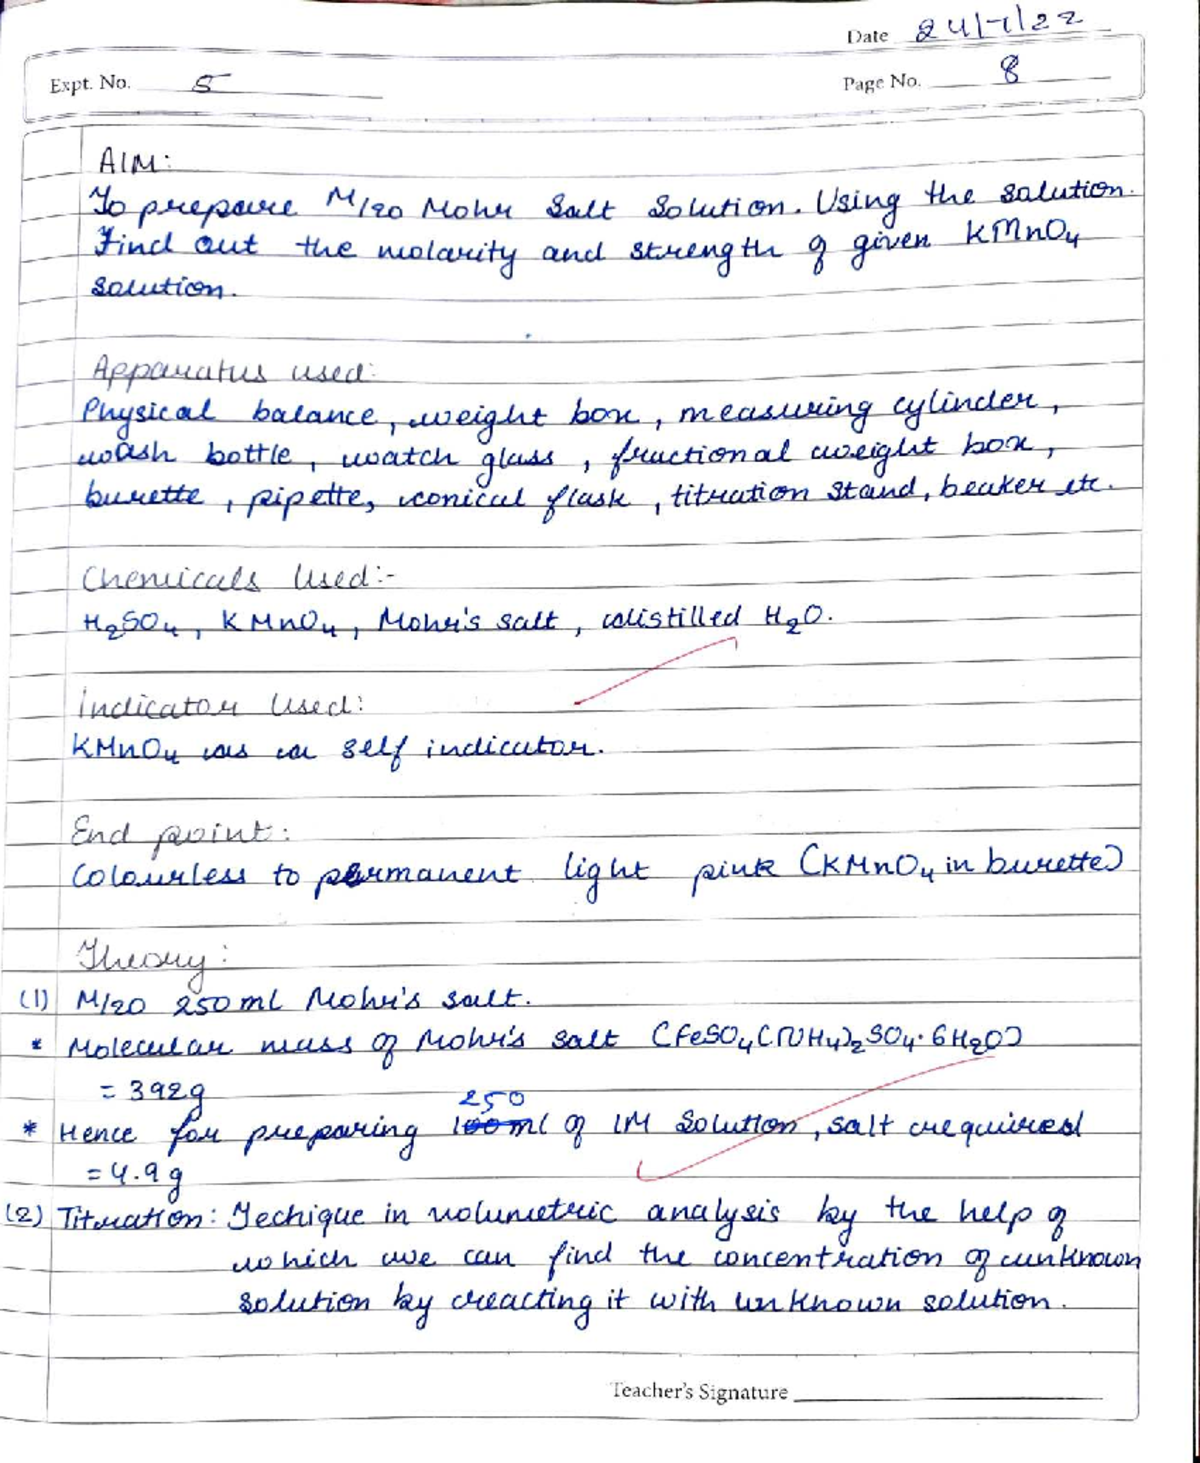 Date 24/7/22
Expt. No. 5
Page No. 8
AIM:
To prepare M/20 Mohr Salt Solution. Using the solution.
Find out the molarity and strength of given KMnO4
solution.
Apparatus used:
Physical balance, weight box, measuring cylinder,
wash bottle, watch glass, fractional weight box,
burette, pipette, conical flask, titration stand, beaker etc.
Chemicals Used:-
H2SO4, KMnO4, Mohr's salt, distilled H2O.
Indicator Used:
KMnO4 as a self indicator.
End point:
Colourless to permanent light pink (KMnO4 in burette)
Theory:
(1) M/20 250ml Mohr's salt.
* Molecular mass of Mohr's salt (FeSO4(NH4)2SO4.6H2O)
= 392g
250
* Hence for preparing 100ml of 1M Solution, salt required
= 4.9g
(2) Titration: Techique in volumetric analysis by the help of
which we can find the concentration of unknown
solution by reacting it with unknown solution.
Teacher's Signature